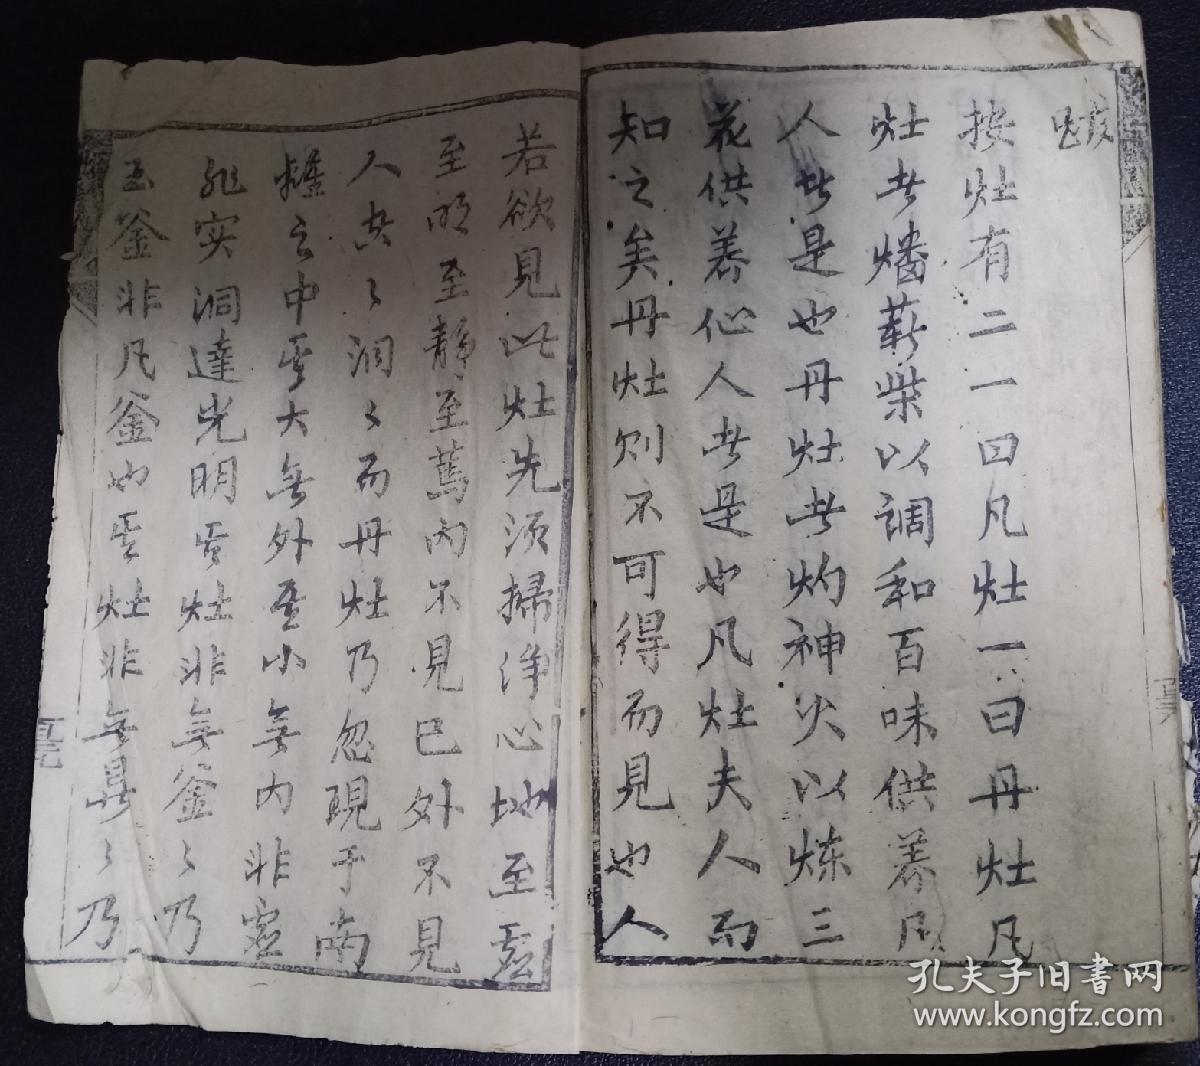 跋
按灶有二一曰凡灶一曰丹灶凡
灶者燔薪柴以调和百味供养凡
人者是也丹灶者灼神火以炼三
花供养仙人者是也凡灶夫人而
知之矣丹灶则不可得而見也人
若欲見此灶先须掃净心地至虚
至明至静至篤内不見己外不見
人空〻洞〻而丹灶乃忽現于南
之中其大無外至小無内非虚
非实洞達光明其灶非無釜〻乃
玉釜非凡釜也其灶非無鼎〻乃
孔夫子旧书网
www.kongfz.com